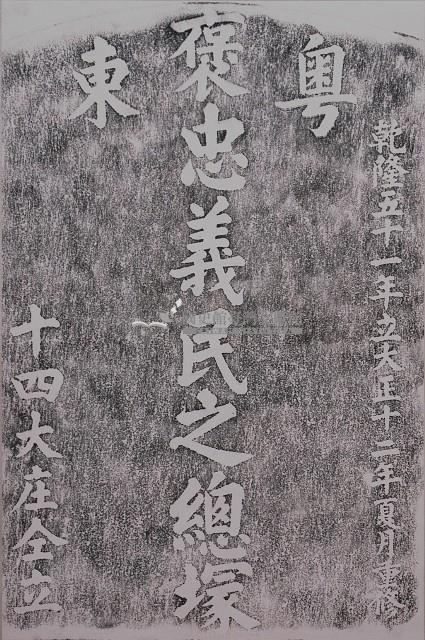 粵東
乾隆五十一年立大正十二年夏月重修
褒忠義民之總塚
十四大庄仝立